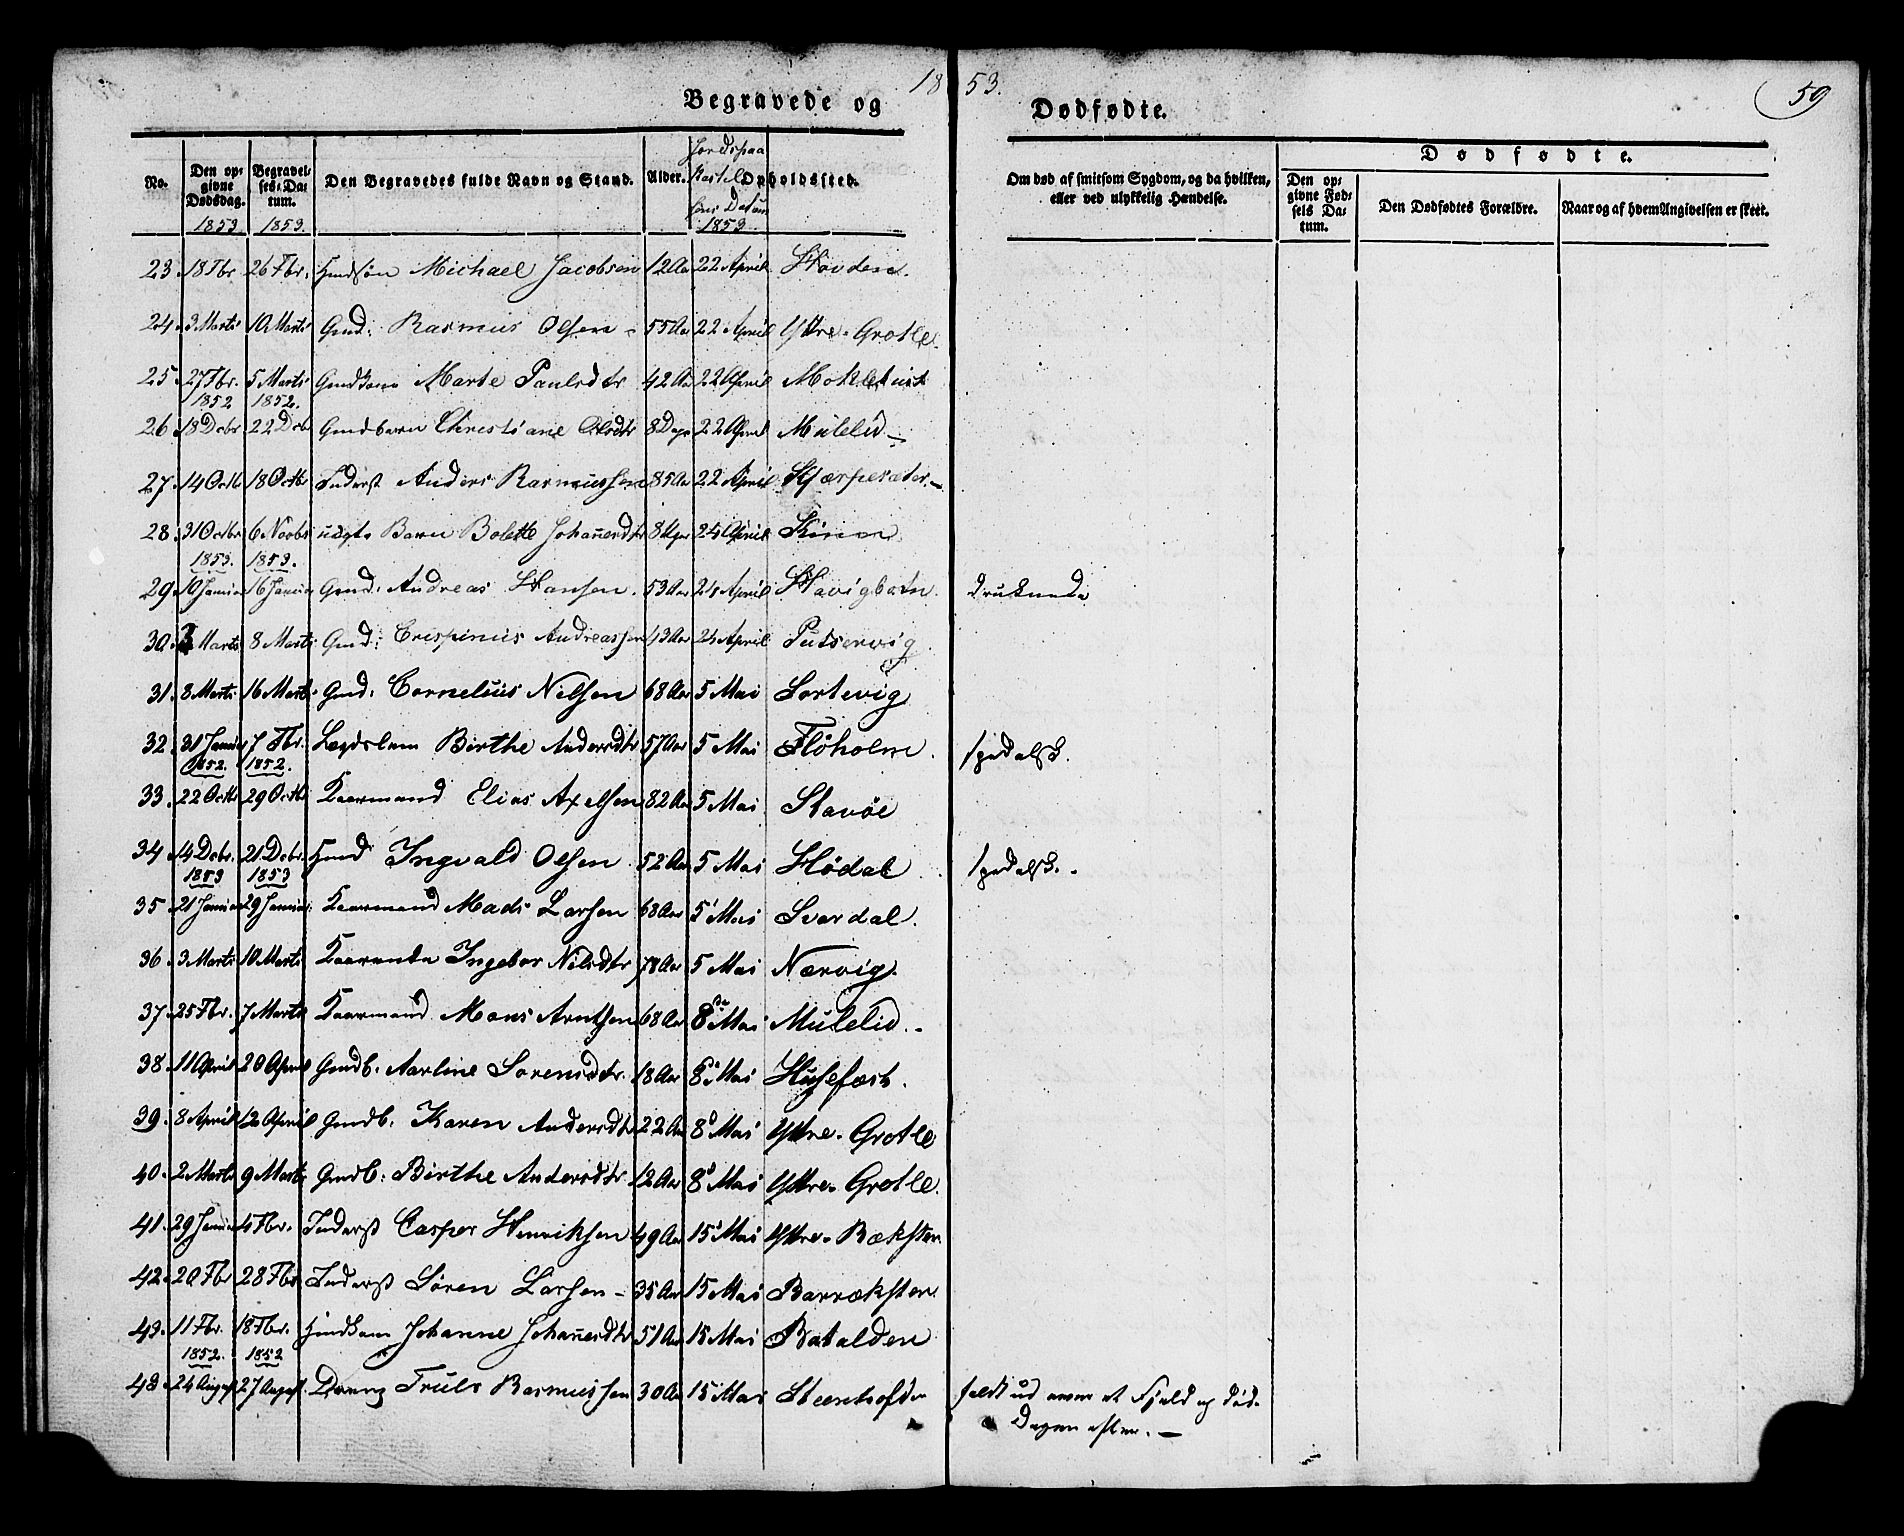 1853.
59
Begravede og
Dødfødte.
No.
Den opgivne Dødsdag. 1853
Begravelses-Datum. 1853.
Den Begravedes fulde Navn og Stand.
Alder.
Jordspaa Datum 1853
Opholdssted.
Om død af smitsom Sygdom, og da hvilken, eller ved ulykkelig Hændelse.
Dødfødte.
Den opgivne Fødsels Datum.
Den Dødfødtes Forældre.
Naar og af hvem Angivelsen er skeet.
23. 18 Fbr. 26 Fbr. Michael Jacobsen 12 Aar 22 April Hovden.
24. 3 Marts 10 Marts Gmd: Rasmus Olsen - 55 Aar 22 April Yttre-Grotle.
25. 27 Fbr. 5 Marts Gmdkone Marte Paulsdtr 42 Aar 22 April Mokletust
1852 1852.
26. 18 Decbr 22 Decb Gmdbarn Christiane Olsdtr 8 Dage 22 April Mulelid -
27. 14 Octb 18 Octbr Inderst Anders Rasmussen 85 Aar 22 April Skjærpesæter. -
28. 31 Octbr 6 Novbr uægte Barn Bolette Johañesdtr 8 Uger 24 April Kinn
1853. 1853.
29. 10 Januar 16 Januar Gmd: Andreas Hansen. 53 Aar 24 April Havigbotn druknede
30. 2 Marts 8 Marts Gmd: Crispinus Andreassen 43 Aar 24 April
31. 8 Marts 16 Marts Gmd: Cornelius Nilsen 68 Aar 5 Mai Sortevig
32. 31 Januar 7 Fbr. Lægdslem Birthe Andersdtr 57 Aar 5 Mai Floholm. spedalsk.
1852. 1852.
33. 22 Octb 29 Octb Kaarmand Elias Axelsen 82 Aar 5 Mai Stavöe
34. 14 Decbr. 21 Decbr. Ingvald Olsen 52 Aar 5 Mai Hödal spedalsk. -
1853 1853
35. 21 Januar 29 Januar Kaarmand Mads Larsen 68 Aar 5 Mai Svardal.
36. 3 Marts 10 Marts Ingebor Nilsdtr 78 Aar 5 Mai Nærvig.
37. 25 Fbr. 7 Marts Kaarmand Mons Arntsen 68 Aar 8de Mai Mulelid. -
38. 11 April 20 April Gmdb. Karline Sorensdtr. 18 Aar 8de Mai Husefæst.
39. 8 April 12 April Gmdb. Karen Andersdtr 22 Aar 8d Mai Yttre-Grotle
40. 2 Marts 9 Marts Gmdb: Birthe Andersdtr 12 Aar 8d Mai Yttre-Grotle.
41. 29 Januar 4 Fbr. Inderst Casper Henriksen 49 Aar 15 Mai Yttre-Ræksten
42. 20 Fbr 28 Fbr. Inderst Sören Larsen - 35 Aar 15 Mai Barræksten
43. 11 Fbr. 18 Fbr. Johanne Johañesdtr 51 Aar 15 Mai Batalden
1852. 1852
43. 24 August 27 August. Dreng Truls Rasmussen 30 Aar 15 Mai Steenhofden faldt ud over et Fjeld og döde
Dagen efter. -